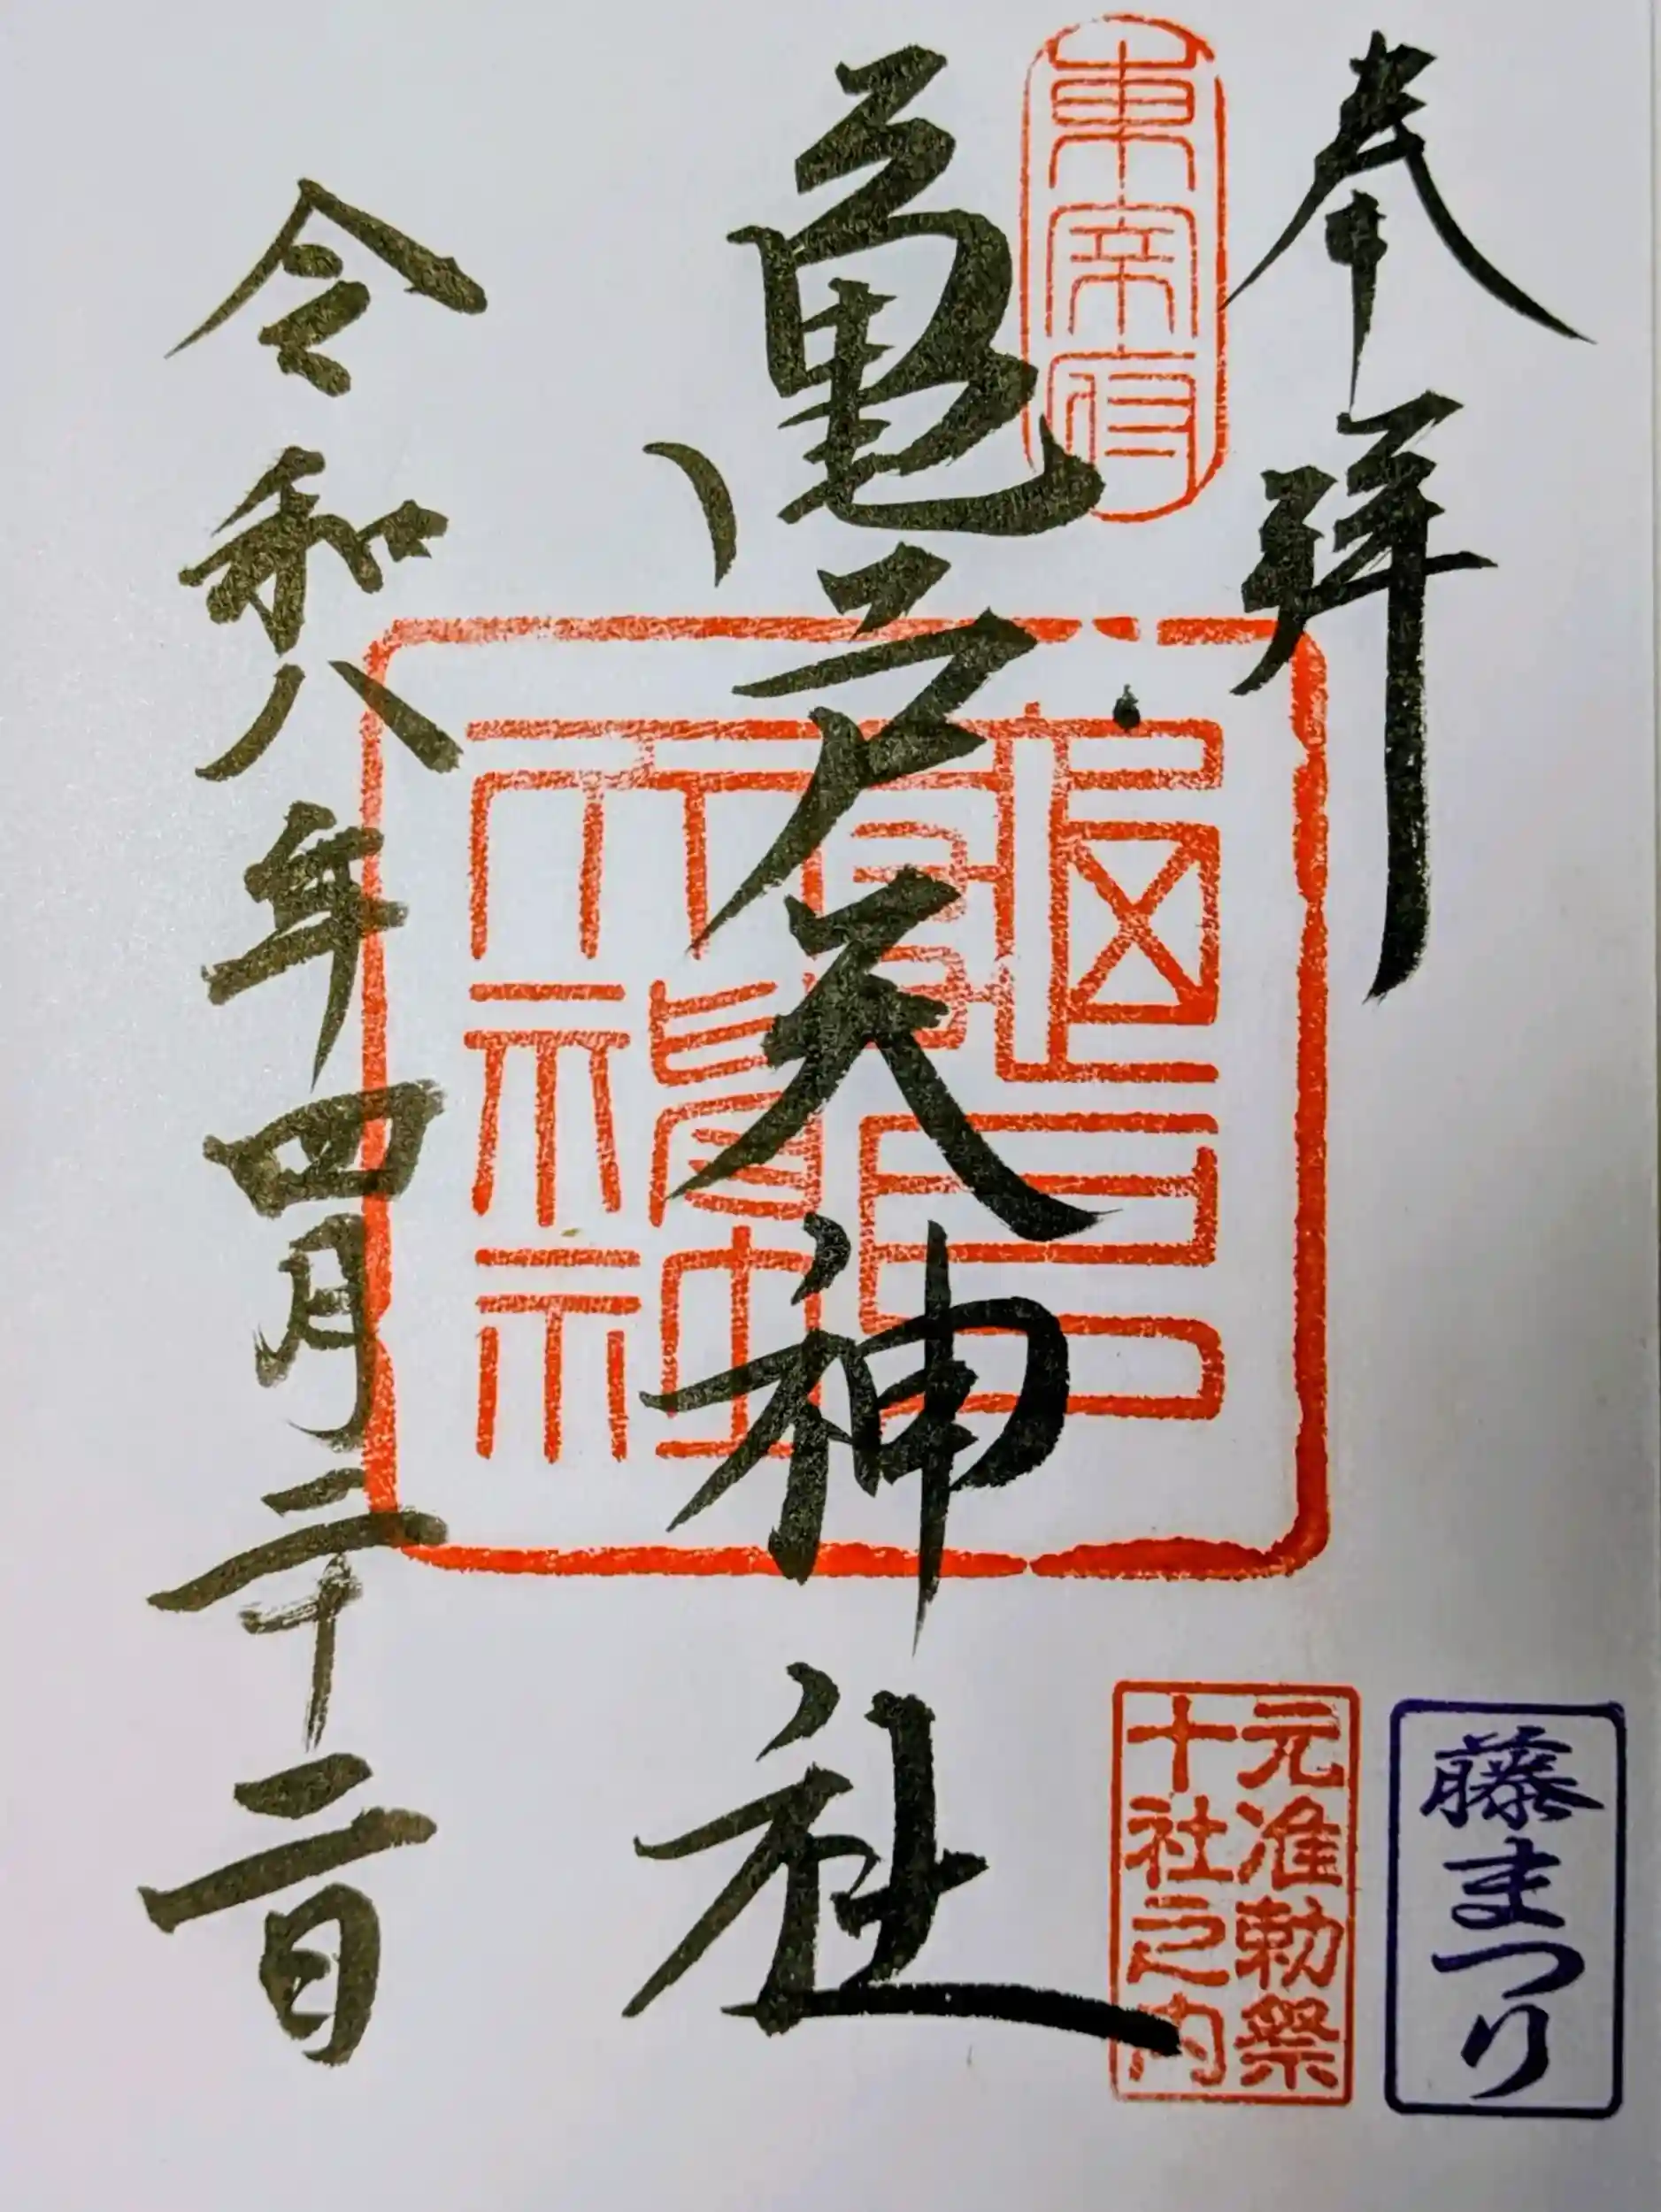 奉拝
東宰府
亀戸天神社
龜戸天神社
令和八年四月二十二日
藤まつり
元准勅祭
十社之内